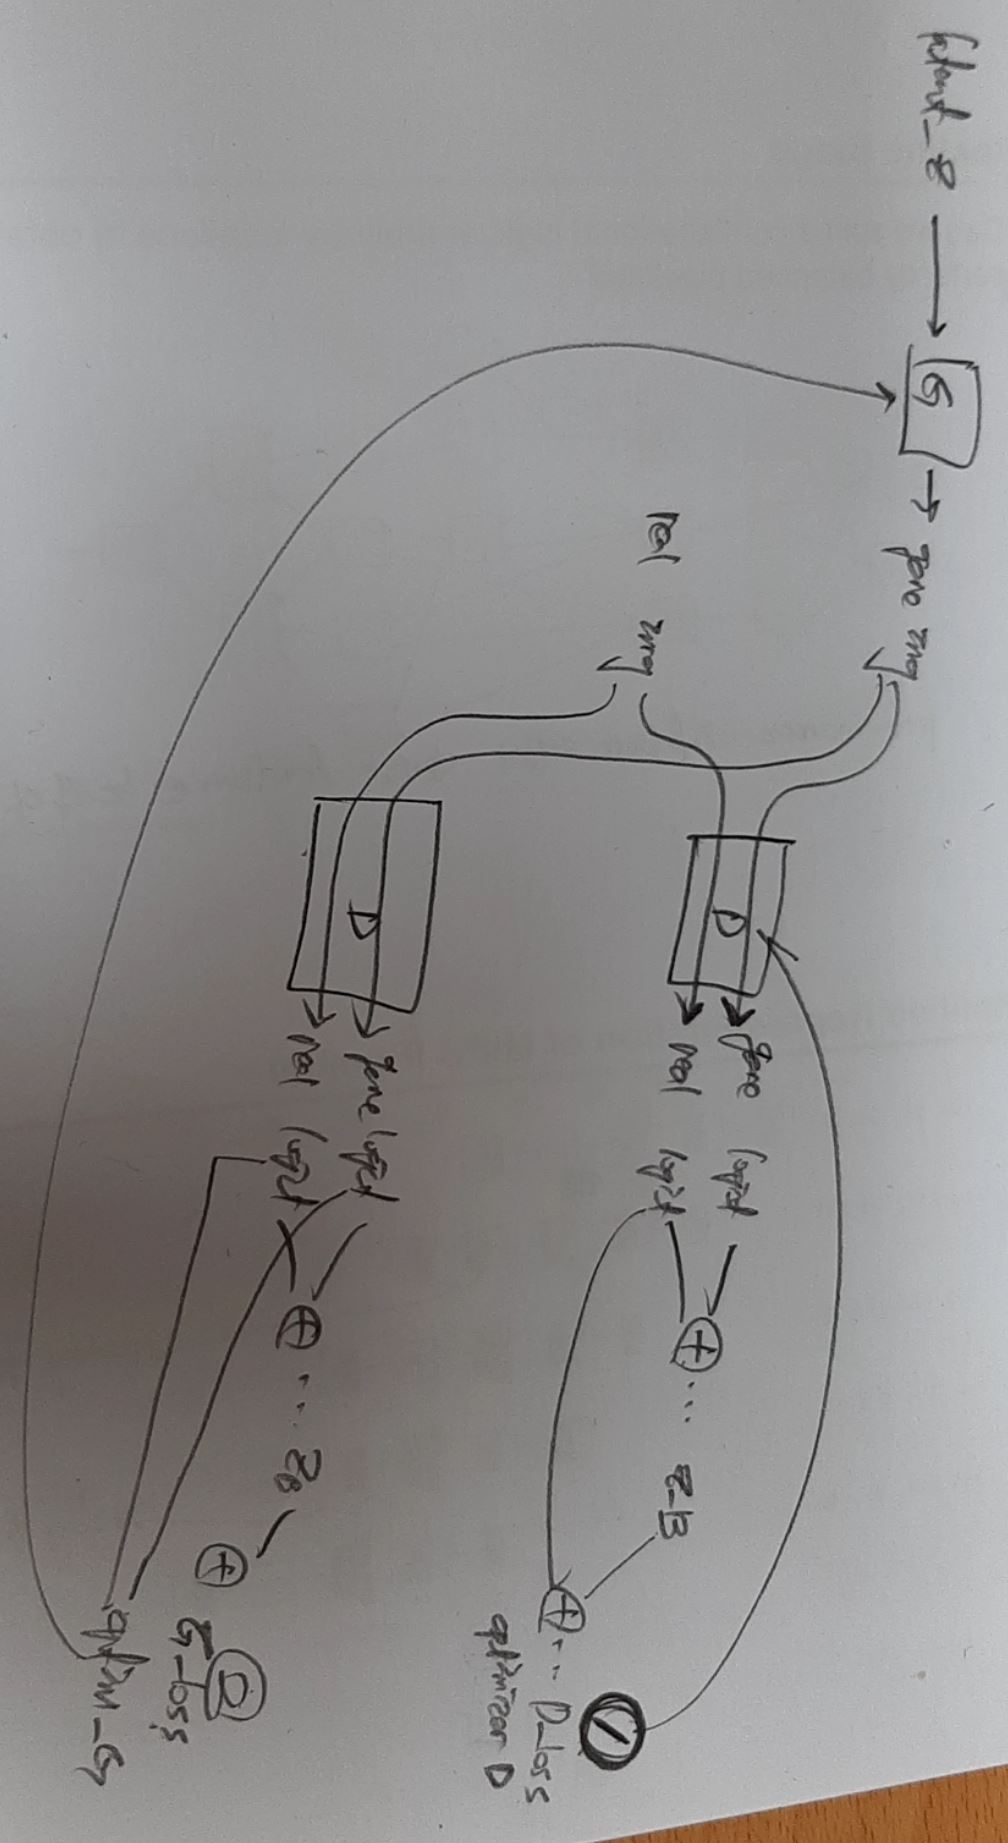 latent_z → G → gene img
D
gene logit
real logit
+ ... Z_B
real img
+ ... D_loss
optimizer D
D
gene logit
real logit
+ ... Z_B
+
2
G_loss
optim_G